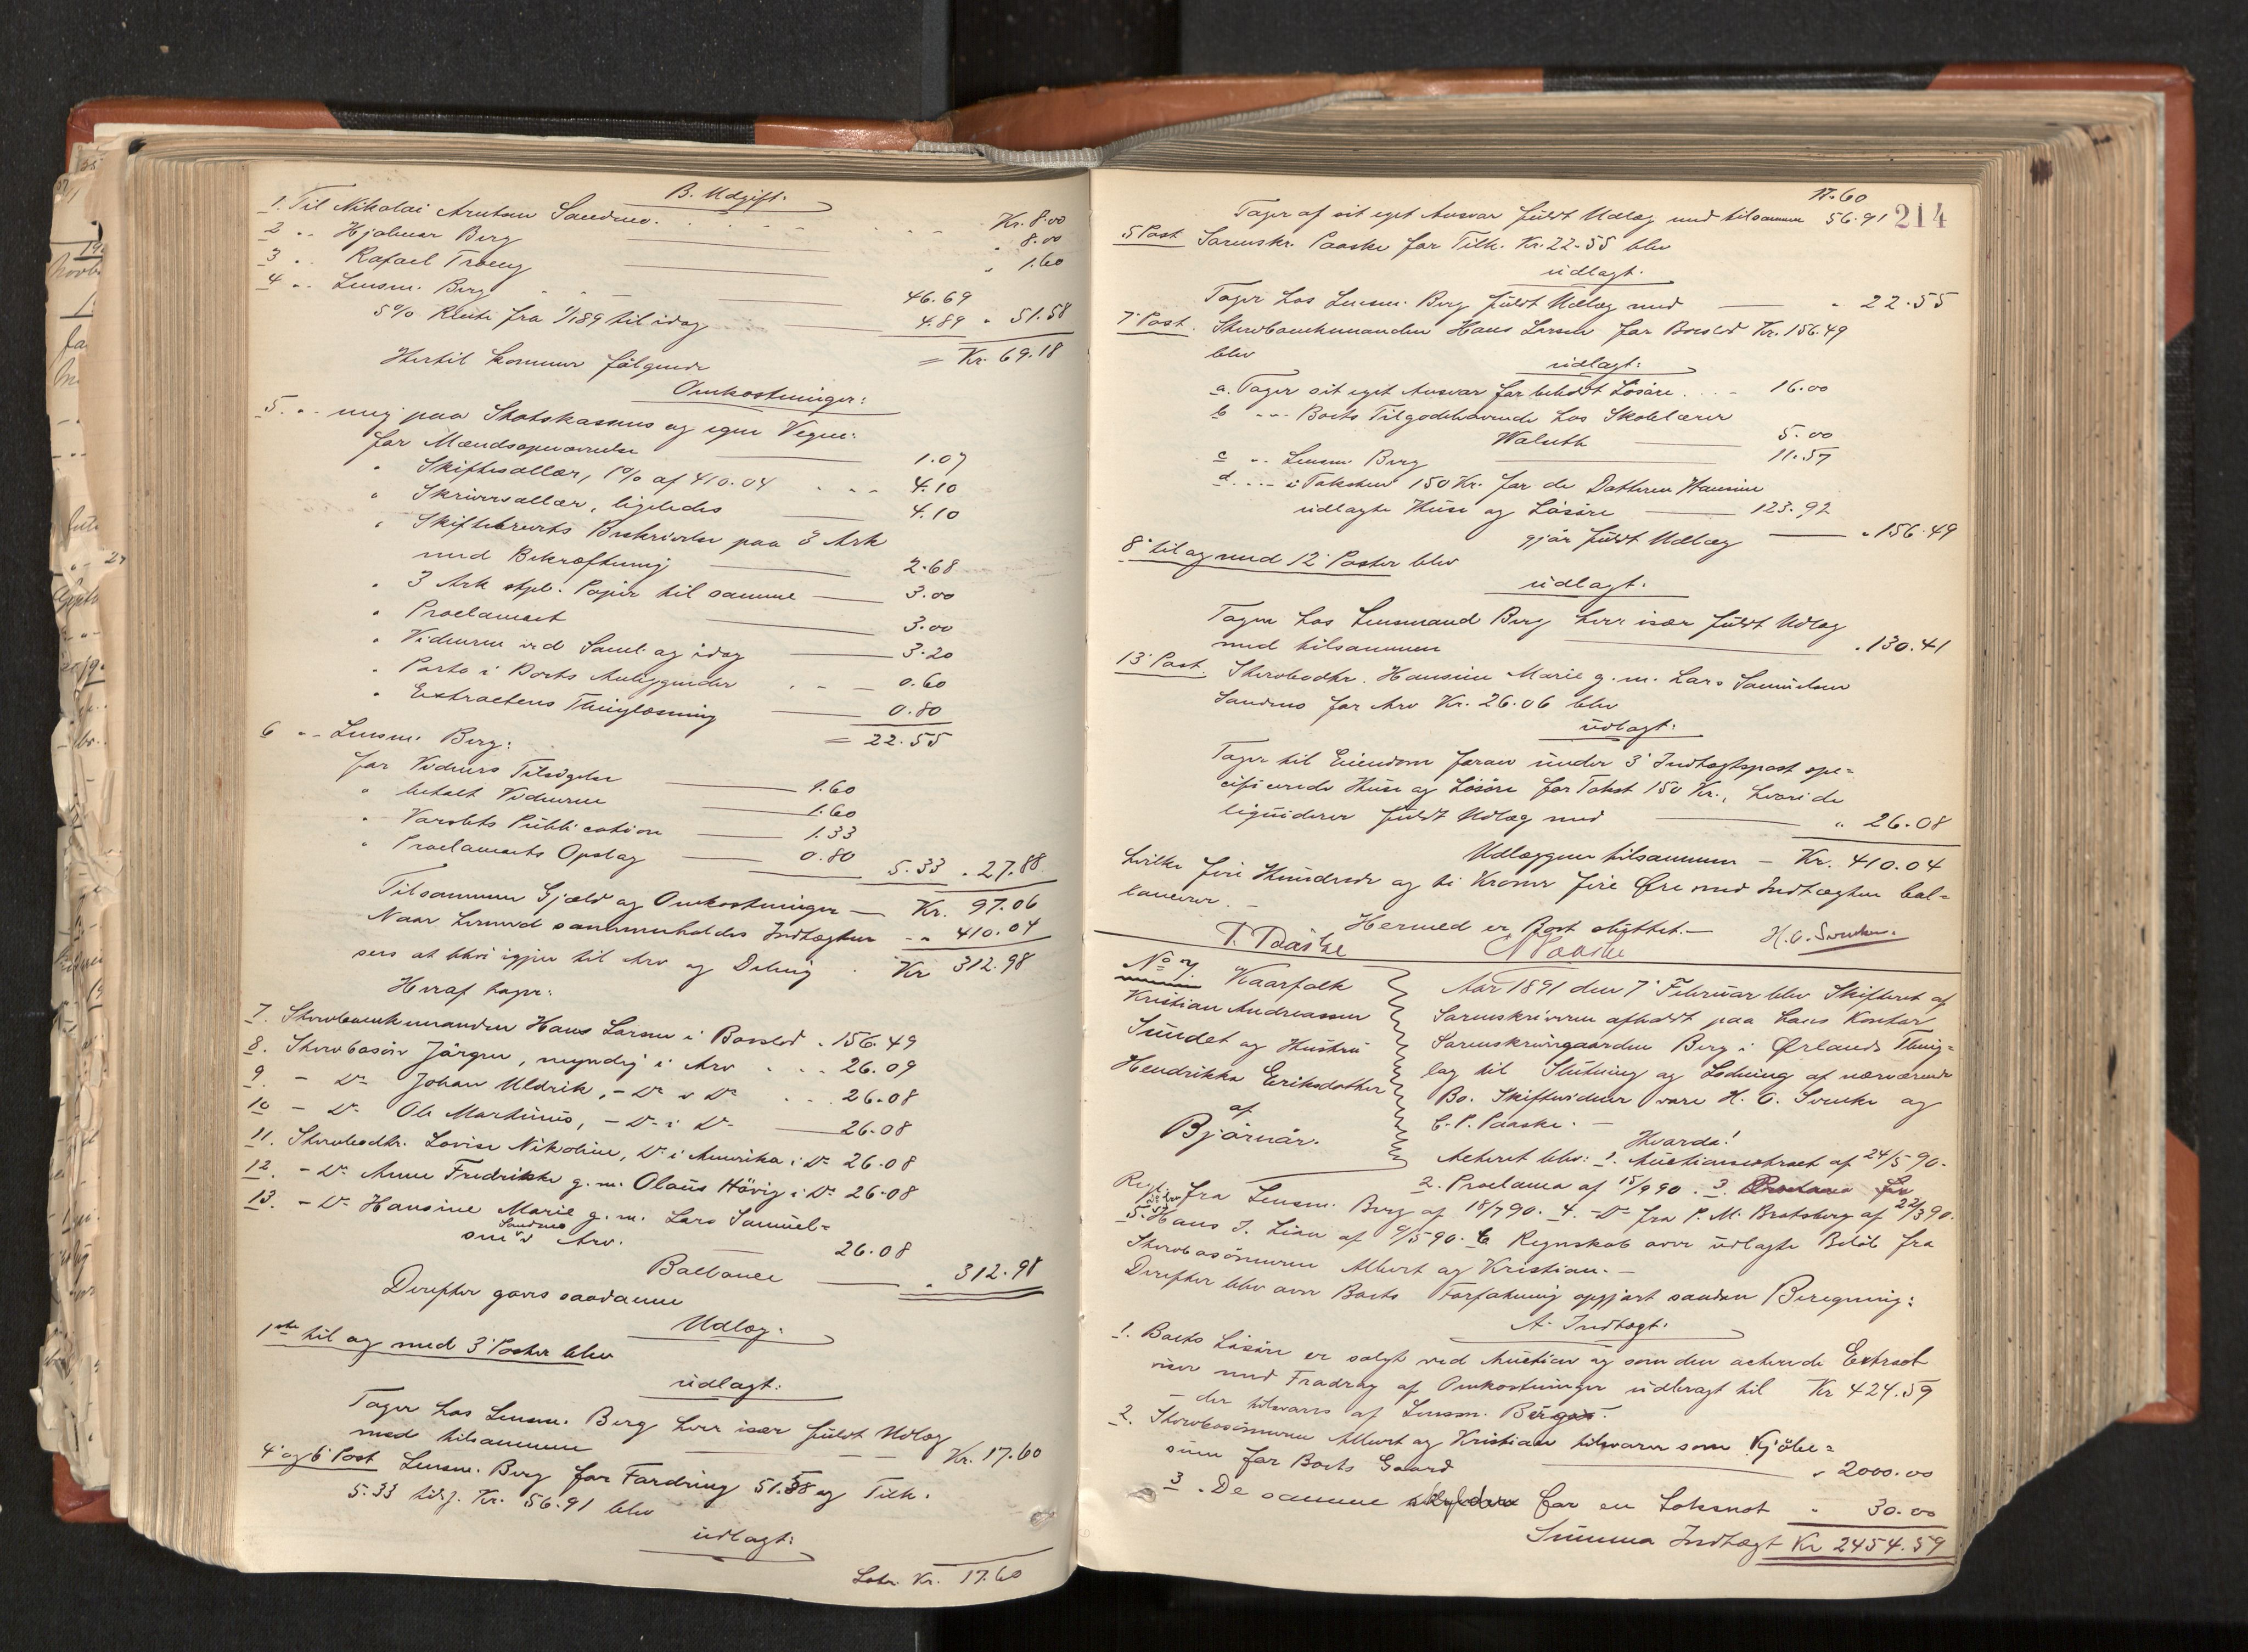 B. Udgift.
1. Til Nikolai Arntsen Sandmo. Kr. 8.00
2 " Hjalmar Berg " 8.00
3 " Rafael " 1.60
4 " Lensm. Berg 46.69
5% Rente fra 1/1 89 til idag 4.89 " 51.58
= Kr. 69.18
Hertil kommer følgende
Omkostninger:
5. " mig paa Statskassens og egne Vegne:
for
1.07
" Skiftesallær, 1% af 410.04 4.10
" Skriversallær, ligeledes 4.10
" Skiftebrevets Beskrivelse paa 3 Ark
med Bekræftning 2.68
" 3 Ark stpl. Papir til samme 3.00
" Proclamaet 3.00
" Vidnerne ved Saml. og idag 3.20
" Porto i Boets Anliggender 0.60
" Extractens Thinglæsning 0.80
= 22.55
6 " Lensm. Berg:
for Vidners Tilsigelse 1.60
" betalt Vidnerne 1.60
" Varslets Publication 1.33
" Proclamaets Opslag 0.80 5.33 " 27.88
Tilsammen Gjæld og Omkostninger Kr. 97.06
Naar hermed sammenholdes Indtægten " 410.04
sees at blive igjen til Arv og Deling Kr 312.98
Heraf tager:
7. Stervboenkemanden Hans Larsen i Boeslod " 156.49
8. Stervbosøn Jørgen, myndig i Arv 26.09
9. - Do Johan Uldrik, - Do i Do 26.08
10 - Do Ole Martinus, - Do i Do 26.08
11. Stervbodtr. Lovise Nikoline, Do i Amerika i Do 26.08
12. - Do Anne Fredrikke g. m. Olaus Høvig i Do 26.08
13. - Do Hansine Marie g. m. Lars Samuel=
sen Sandmo i Arv. 26.08
Ballance " 312.98
Derefter gjøres saadanne
Udlæg:
1ste til og med 3' Poster blev
udlagt:
Tager hos Lensm. Berg hver især fuldt Udlæg
med tilsammen Kr. 17.60
4' og 6' Post Lensm. Berg for Fordring 51.58 og Tilk.
5.33 tils. Kr. 56.91 blev
udlagt:
Later Kr. 17.60
17.60
Tager af sit eget Ansvar fuldt Udlæg med tilsammen 56.91
214
5 Post Sorenskr. Paaske for Tilk. Kr. 22.55 blev
udlagt.
Tager hos Lensm. Berg fuldt Udlæg med " 22.55
7' Post. Stervboenkemanden Hans Larsen for Boeslod Kr. 156.49
blev
udlagt:
a. Tager sit eget Ansvar for beholdt Løsøre 16.00
b " Boets Tilgodehavende hos Skolelærer
Walseth 5.00
c " Lensm. Berg 11.57
d. " i Taksten 150 Kr. for de Datteren Hansine
udlagte Huse og Løsøre 123.92
gjør fuldt Udlæg " 156.49
8' til og med 12' Poster blev
udlagt.
Tager hos Lensmand Berg hver især fuldt Udlæg
med tilsammen " 130.41
13' Post. Stervbodtr. Hansine Marie g. m. Lars Samuelsen
Sandmo for Arv Kr. 26.06 blev
udlagt:
Tager til Eiendom foran under 3' Indtægtspost spe=
cificerede Huse og Løsøre for Takst 150 Kr., hvori de
liqviderer fuldt Udlæg med " 26.08
Udlæggene tilsammen - Kr. 410.04
hvilke fire Hundrede og ti Kroner fire Øre med Indtægten bal=
lancerer. -
Hermed er Boet sluttet. -
Paaske H. O. Svenke.
No 7.
Kaarfolk
Kristian Andreassen
Sundet og Hustru
Hendrikka Eriksdatter
af
Bjørnør.
Aar 1891 den 7' Februar blev Skifteret af
Sorenskriveren afholdt paa hans Kontor
Sorenskrivergaarden Berg i Ørlands Thing=
lag til Slutning og Lodning af nærværende
Bo. Skiftevidner vare H. O. Svenke og
C. P. Paaske. -
Hvorda!
Acteret blev: 1. Auctionsextract af 24/5 90.
2. Proclama af 15/9 90. 3.
fra Lensm. Berg af 18/7 90. 4. - Do fra P. M. Bratsberg af 22/3 90.
5. Hans J. Lian af 9/5 90. 6 Regnskab over udlagte Beløb fra
Stervbosønnerne Albert og Kristian. -
Derefter blev over Boets Forfatning opgjort saadan Beregning:
A. Indtægt.
1. Boets Løsøre er solgt ved Auction og som den acterede Extract
viser med Fradrag af Omkostninger udbragt til Kr 424.59
der tilsvares af Lensm. Berg.
2. Stervbosønnerne Albert og Kristian tilsvarer som Kjøbe=
sum for Boets Gaard " 2000.00
3. De samme skylder for en Laksnot " 30.00
Summa Indtægt Kr 2454.59